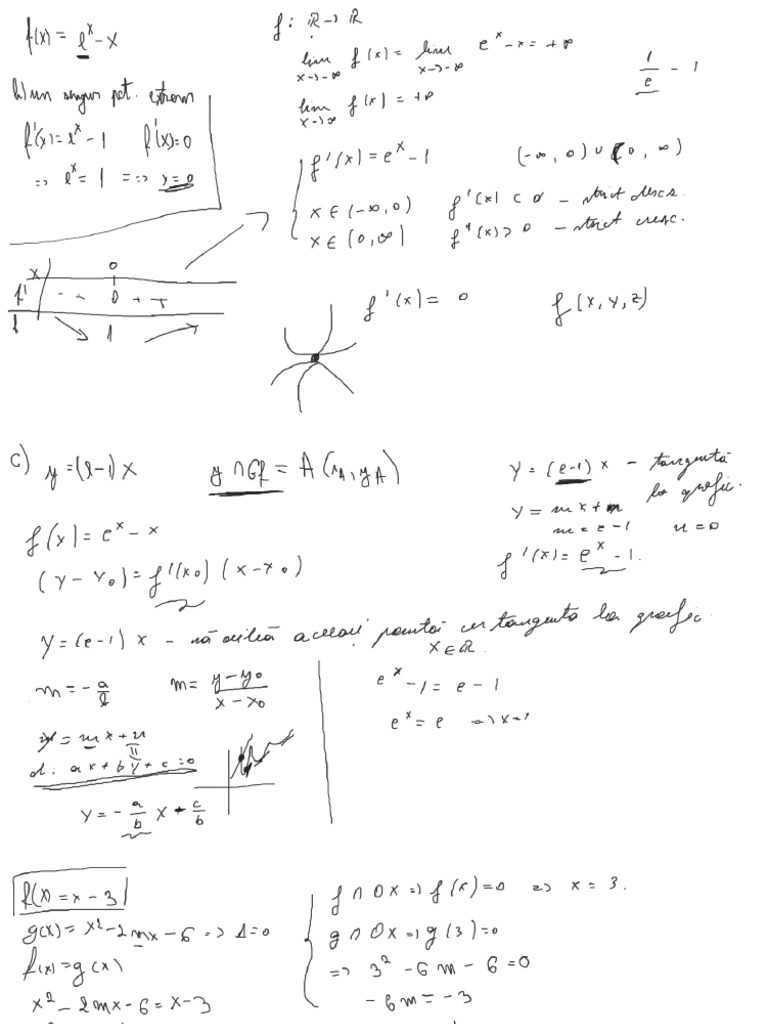 f(x) = e^x - x
b) un singur pct. extrem
f'(x) = e^x - 1 f'(x) = 0
=> e^x = 1 => x = 0
x 0
f' - - 0 + +
f 1
f: ℝ → ℝ
lim x→-∞ f(x) = lim x→-∞ e^x - x = +∞
lim x→∞ f(x) = +∞
1/e - 1
f'(x) = e^x - 1 (-∞, 0) ∪ (0, ∞)
x ∈ (-∞, 0) f'(x) < 0 - strict desc.
x ∈ (0, ∞) f'(x) > 0 - strict cresc.
f'(x) = 0 f(x, y, z)
c) y = (e-1) x y ∩ Gf = A(x_A, y_A)
f(x) = e^x - x
(y - y_0) = f'(x_0) (x - x_0)
y = (e-1) x - tangentă
la grafic.
y = mx + n
m = e - 1 n = 0
f'(x) = e^x - 1.
y = (e-1) x - să aibă aceeași pantă cu tangenta la grafic.
x ∈ ℝ
m = -a/b m = (y - y_0)/(x - x_0)
y = mx + n
d: ax + by + c = 0
y = -a/b x - c/b
e^x - 1 = e - 1
e^x = e => x = 1
f(x) = x - 3
g(x) = x^2 - 2mx - 6 => Δ = 0
f(x) = g(x)
x^2 - 2mx - 6 = x - 3
f ∩ Ox => f(x) = 0 => x = 3.
g ∩ Ox => g(3) = 0
=> 3^2 - 6m - 6 = 0
-6m = -3